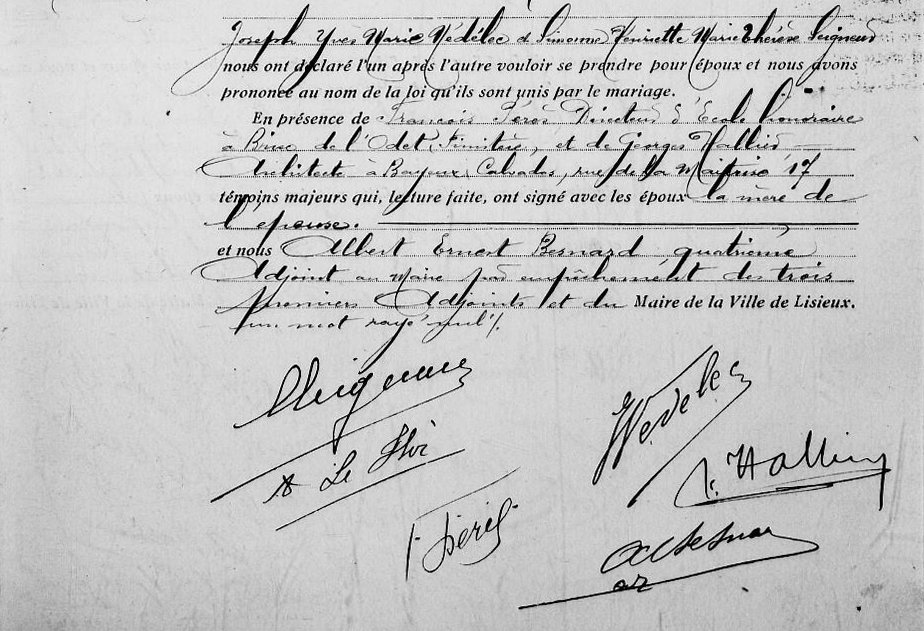 Joseph Yves Marie Nédélec et Simonne Henriette Marie Thérèse Seigneur
nous ont déclaré l'un après l'autre vouloir se prendre pour époux et nous avons
prononcé au nom de la loi qu'ils sont unis par le mariage.
En présence de François Pérès, Directeur d'École honoraire
à Briec de l'Odet, Finistère, et de Georges Hallier
Architecte à Bayeux, Calvados, rue de la Maitrise 17
témoins majeurs qui, lecture faite, ont signé avec les époux la mère de
l'épouse.
et nous Albert Ernest Besnard quatrième
Adjoint au Maire par empêchement des trois
premiers Adjoints et du Maire de la Ville de Lisieux.
un mot rayé nul /.
Nédélec
Le
Hallier